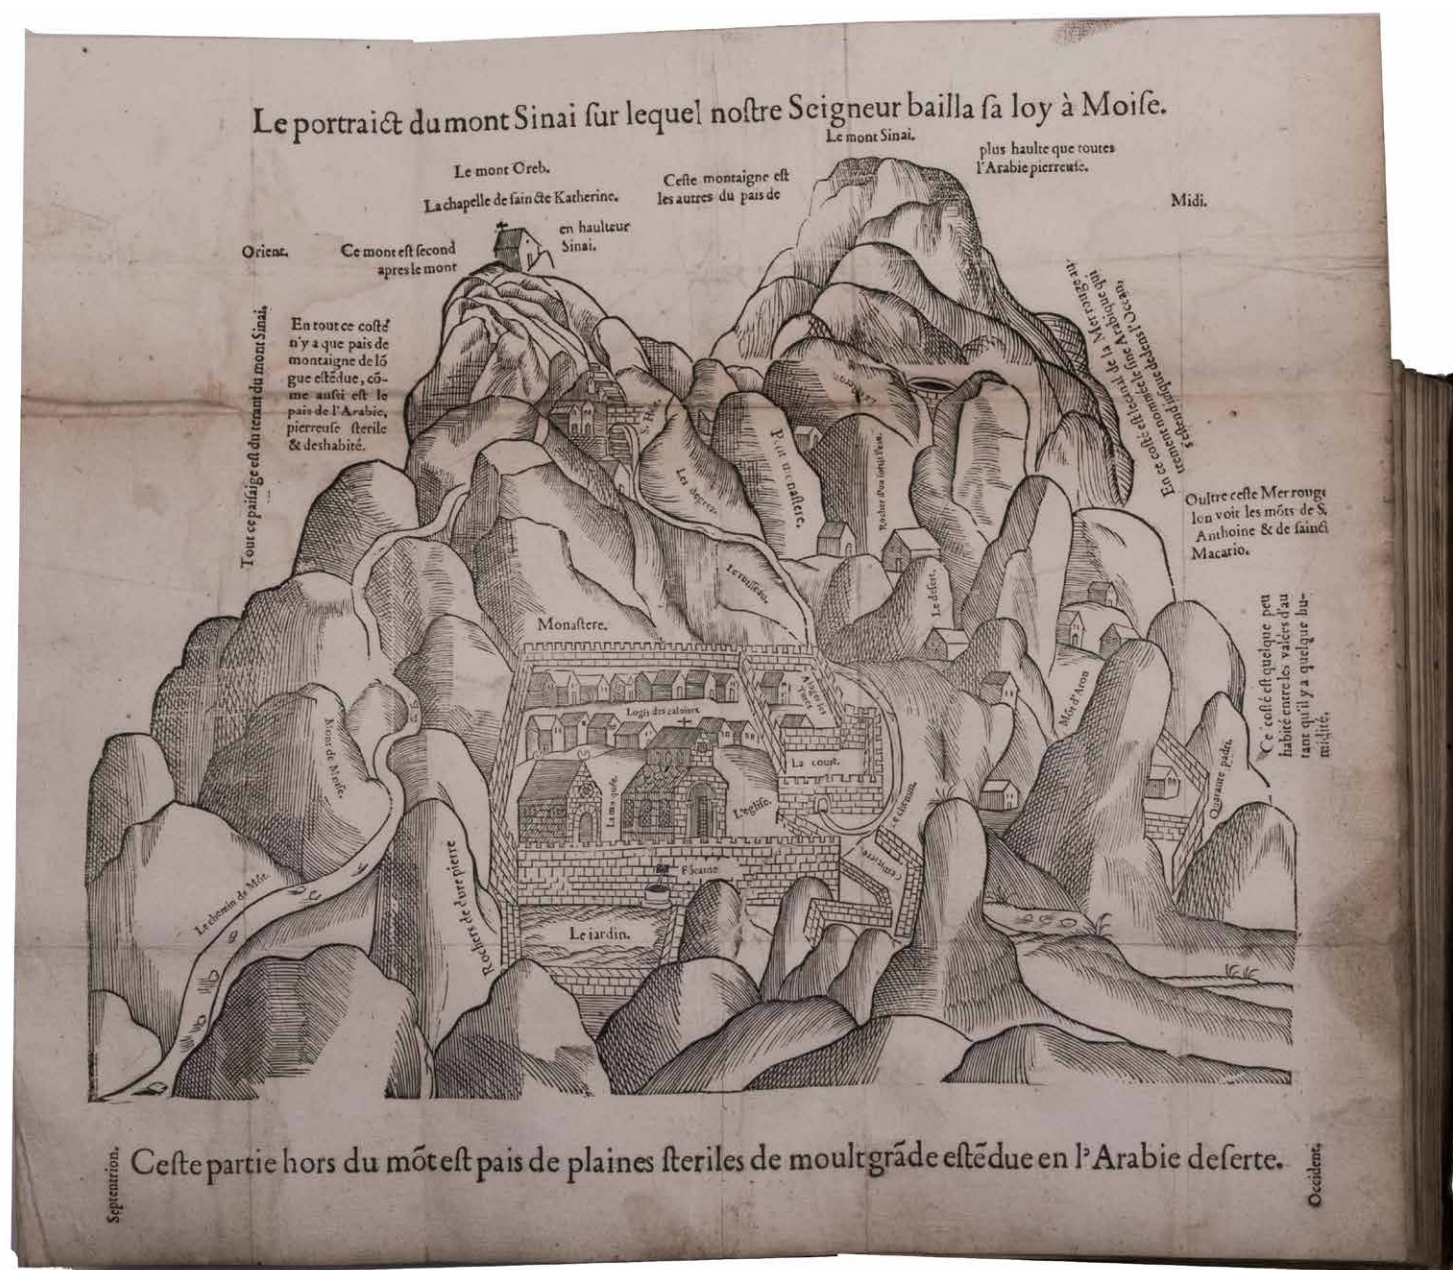 Le portraict du mont Sinai ſur lequel noſtre Seigneur bailla ſa loy à Moiſe.
Le mont Sinai.
Le mont Oreb.
La chapelle de ſaincte Katherine.
Ceſte montaigne eſt
les autres du pais de
plus haulte que toutes
l'Arabie pierreuſe.
Midi.
Orient.
Ce mont eſt ſecond
apres le mont
en haulteur
Sinai.
Tout ce païſaige eſt du tenant du mont Sinai,
En tout ce coſté
n'y a que pais de
montaigne de lō
gue eſtēdue, cō-
me auſsi eſt le
pais de l'Arabie,
pierreuſe ſterile
& deshabité.
En ce coſté eſt le canal de la Mer rouge au-
trement nommé le ſine Arabique qui
s'eſtend juſque dedens l'Ocean,
Oultre ceſte Mer rouge
lon voit les mōts de S.
Anthoine & de ſainct
Macario.
Ce coſté eſt quelque peu
habité entre les valées d'au
tant qu'il y a quelque hu-
midité.
Petit monaſtere.
Les degrez
Le ruiſſeau.
Le deſert.
Monaſtere.
Logis des caloiers
La court.
La moſquée.
L'egliſe.
Le chemin.
Cemitiere.
Fōtaine
Le iardin.
Mōt d'Aron
Quarante padri.
Mont de Moiſe.
Le chemin de Mōt.
Rochers de dure pierre
Septentrion.
Ceſte partie hors du mōt eſt pais de plaines ſteriles de moult grāde eſtēdue en l'Arabie deſerte.
Occident.